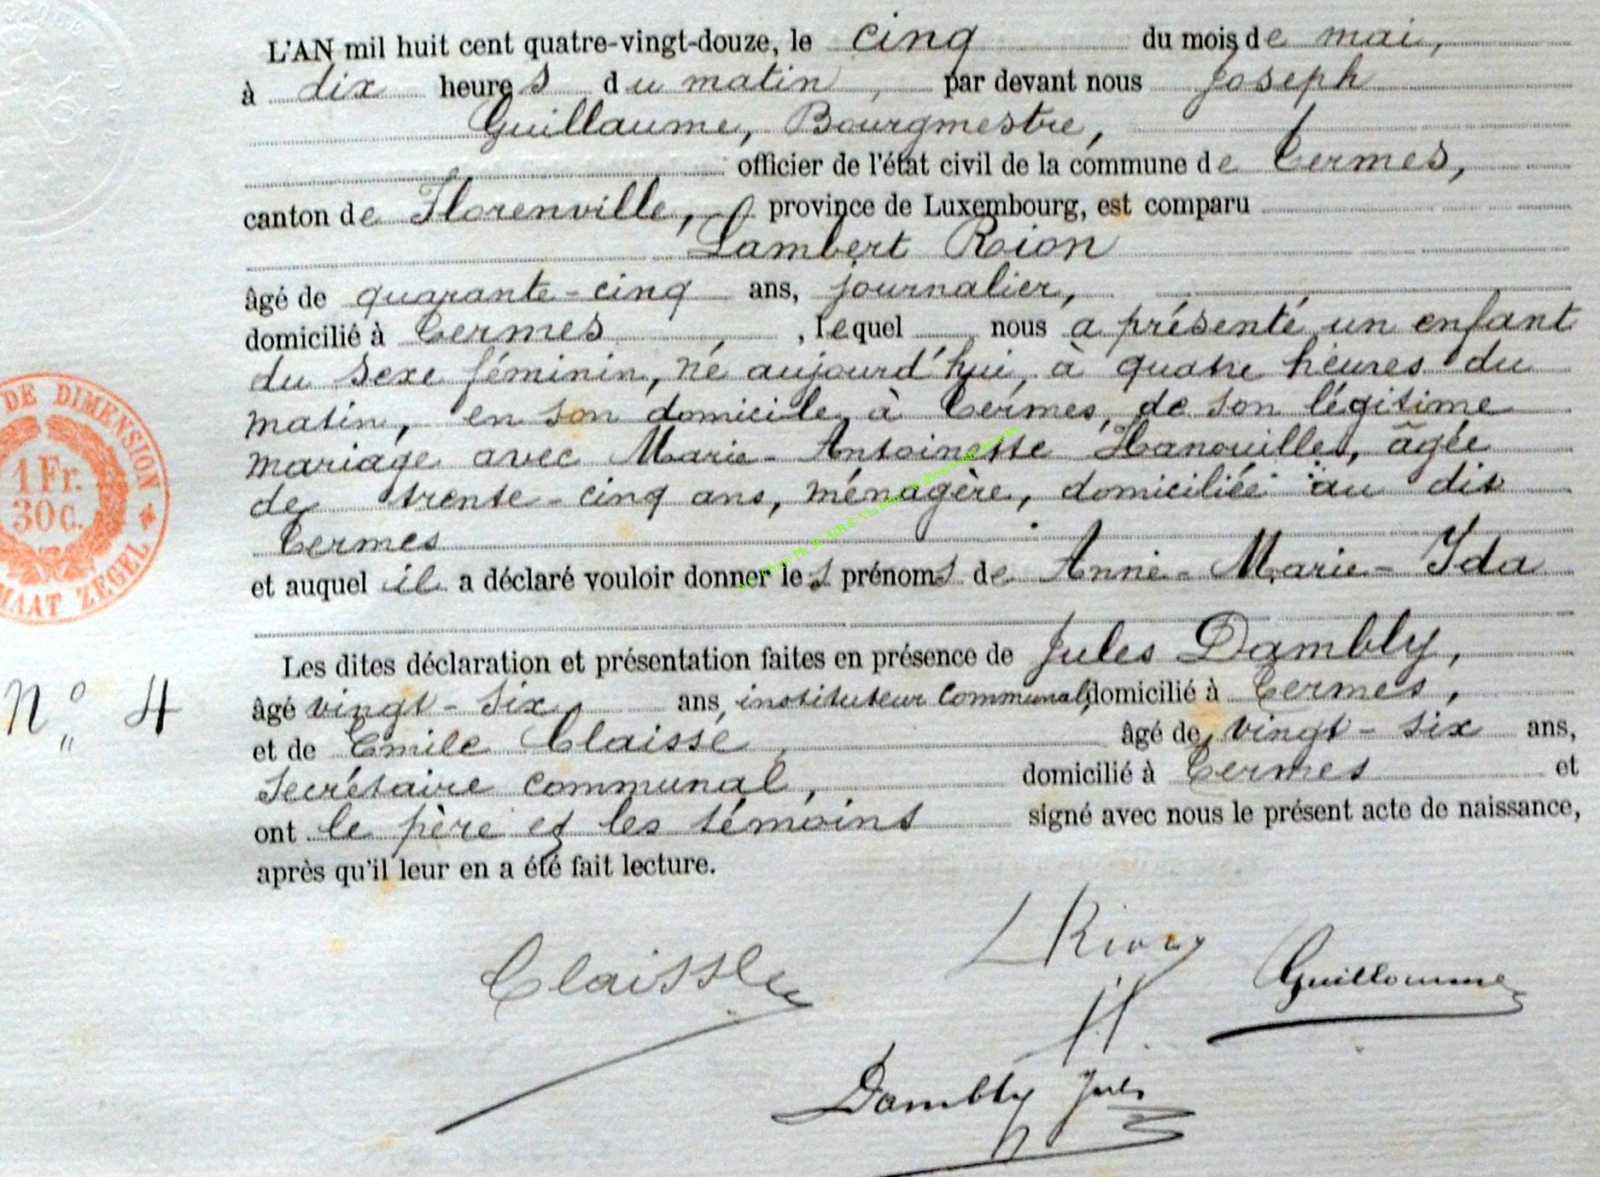 L'AN mil huit cent quatre-vingt-douze, le cinq du mois de mai,
à dix heures du matin, par devant nous Joseph
Guillaume, Bourgmestre,
officier de l'état civil de la commune de Termes,
canton de Florenville, province de Luxembourg, est comparu
Lambert Rion
âgé de quarante-cinq ans, journalier,
domicilié à Termes, lequel nous a présenté un enfant
du sexe féminin, né aujourd'hui, à quatre heures du
matin, en son domicile, à Termes, de son légitime
mariage avec Marie-Antoinette Hanouille, âgée
de trente-cinq ans, ménagère, domiciliée au dit
Termes
et auquel il a déclaré vouloir donner les prénoms de Anne-Marie-Ida
Les dites déclaration et présentation faites en présence de Jules Dambly,
âgé vingt-six ans, instituteur communal, domicilié à Termes,
et de Emile Claisse, âgé de vingt-six ans,
secrétaire communal, domicilié à Termes et
ont le père et les témoins signé avec nous le présent acte de naissance,
après qu'il leur en a été fait lecture.
DE DIMENSION
1 Fr.
30 c.
MAAT ZEGEL
N° 4
Claisse
L Rion
Guillaume
Dambly Jules